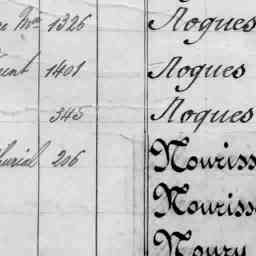 1326 Nogues
1401 Nogues
345 Noques
206 Nouriss
Nouriss
Noury